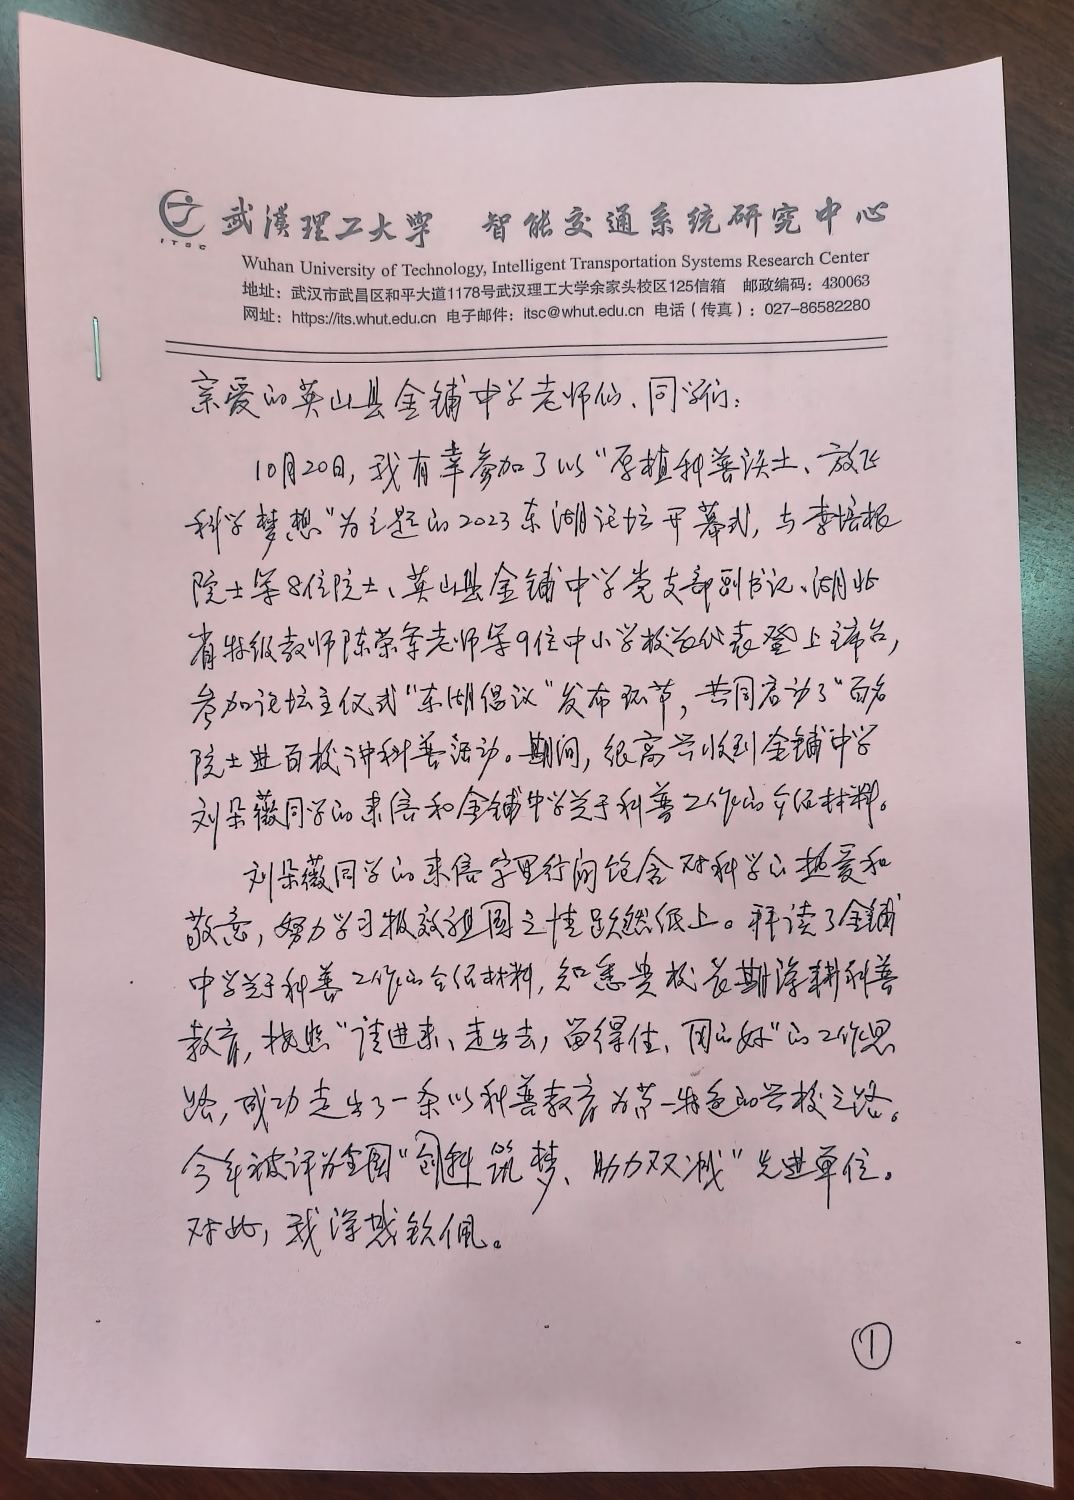 武汉理工大学 智能交通系统研究中心
ITSC
Wuhan University of Technology, Intelligent Transportation Systems Research Center
地址：武汉市武昌区和平大道1178号武汉理工大学余家头校区125信箱 邮政编码：430063
网址：https://its.whut.edu.cn 电子邮件：itsc@whut.edu.cn 电话（传真）：027-86582280
亲爱的英山县金铺中学老师们、同学们：
10月20日，我有幸参加了以“厚植科普沃土、放飞
科学梦想”为主题的2023东湖论坛开幕式，与李培根
院士等8位院士、英山县金铺中学党支部副书记、湖北
省特级教师陈荣季老师等9位中小学校长代表登上主席台，
参加论坛主仪式“东湖倡议”发布环节，共同启动了“百名
院士进百校”讲科普活动。期间，很高兴收到金铺中学
刘朵薇同学的来信和金铺中学关于科普工作的介绍材料。
刘朵薇同学的来信字里行间饱含对科学的热爱和
敬意，努力学习报效祖国之情跃然纸上。拜读了金铺
中学关于科普工作的介绍材料，知悉贵校长期深耕科普
教育，按照“请进来、走出去，留得住、用的好”的工作思
路，成功走出了一条以科普教育为第一特色的兴校之路。
今年被评为全国“创科筑梦、助力双减”先进单位。
对此，我深感钦佩。
①